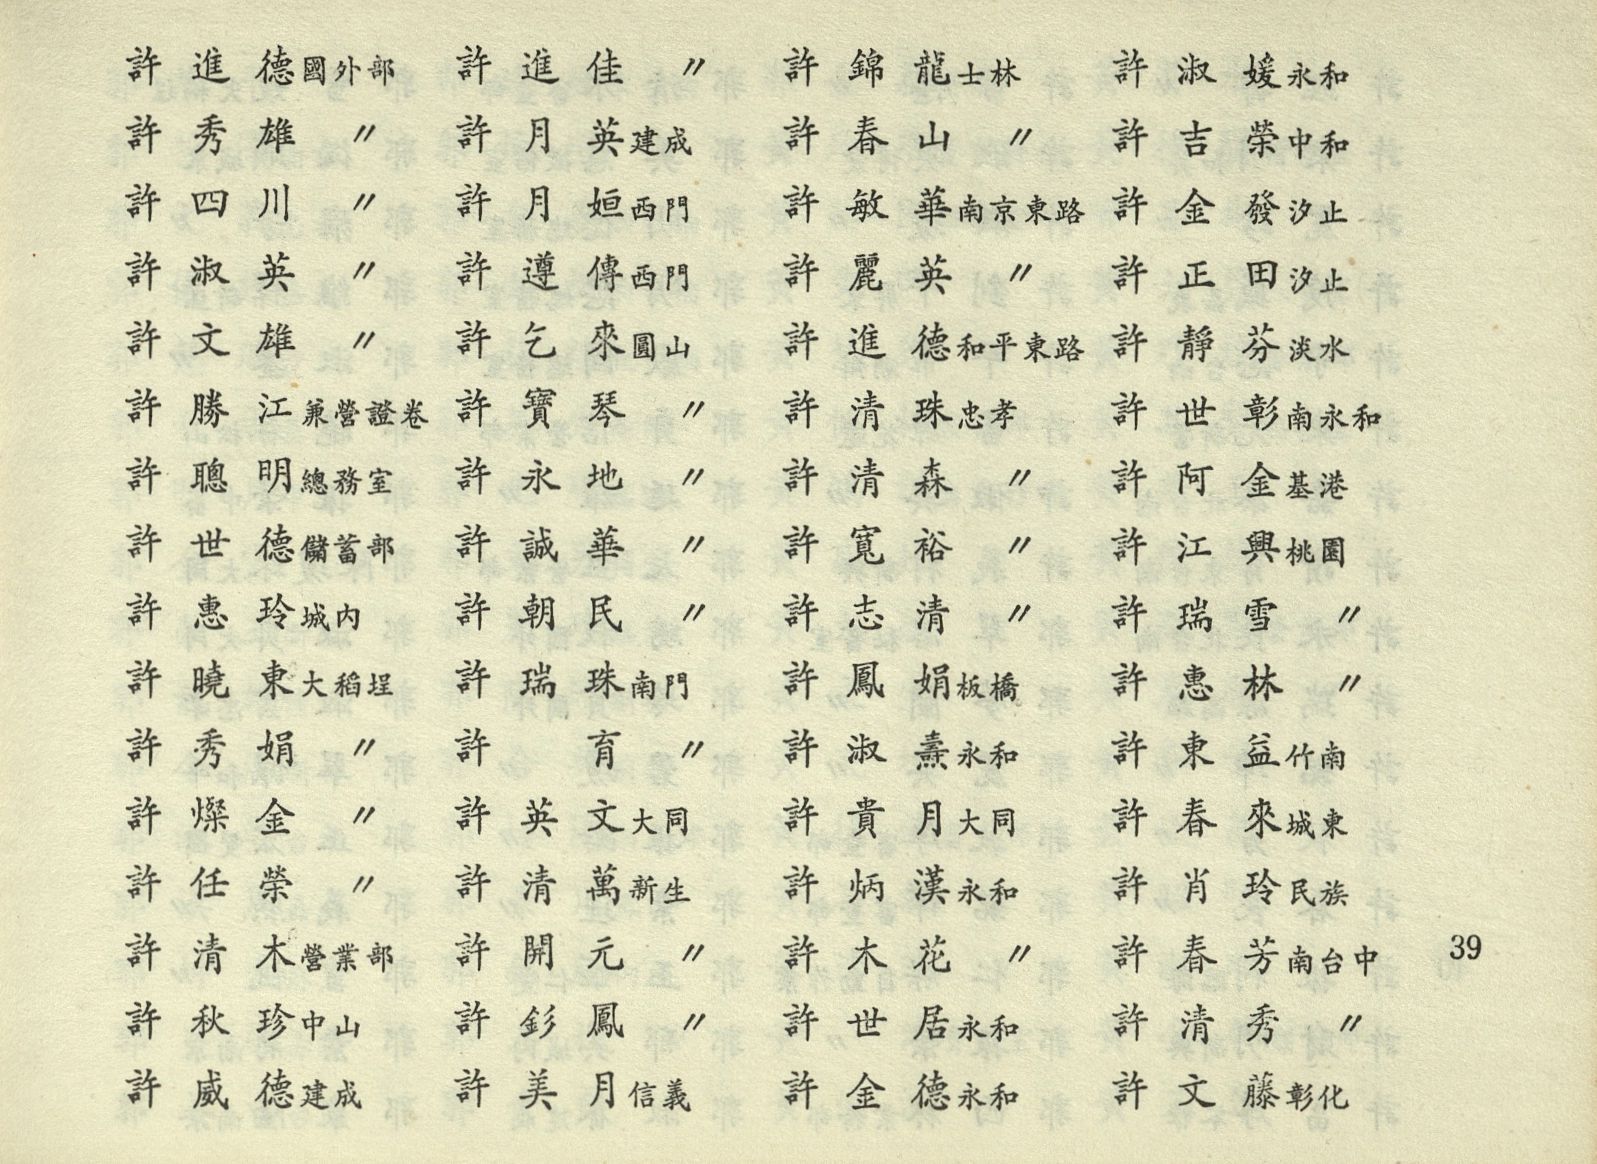 許進德國外部
許秀雄〃
許四川〃
許淑英〃
許文雄〃
許勝江兼營證卷
許聰明總務室
許世德儲蓄部
許惠玲城内
許曉東大稻埕
許秀娟〃
許燦金〃
許任榮〃
許清木營業部
許秋珍中山
許威德建成
許進佳〃
許月英建成
許月姮西門
許遵傳西門
許乞來圓山
許寶琴〃
許永地〃
許誠華〃
許朝民〃
許瑞珠南門
許育〃
許英文大同
許清萬新生
許開元〃
許釤鳳〃
許美月信義
許錦龍士林
許春山〃
許敏華南京東路
許麗英〃
許進德和平東路
許清珠忠孝
許清森〃
許寬裕〃
許志清〃
許鳳娟板橋
許淑燾永和
許貴月大同
許炳漢永和
許木花〃
許世居永和
許金德永和
許淑媛永和
許吉榮中和
許金發汐止
許正田汐止
許靜芬淡水
許世彰南永和
許阿金基港
許江興桃園
許瑞雪〃
許惠林〃
許東益竹南
許春來城東
許肖玲民族
許春芳南台中
許清秀〃
許文藤彰化
39